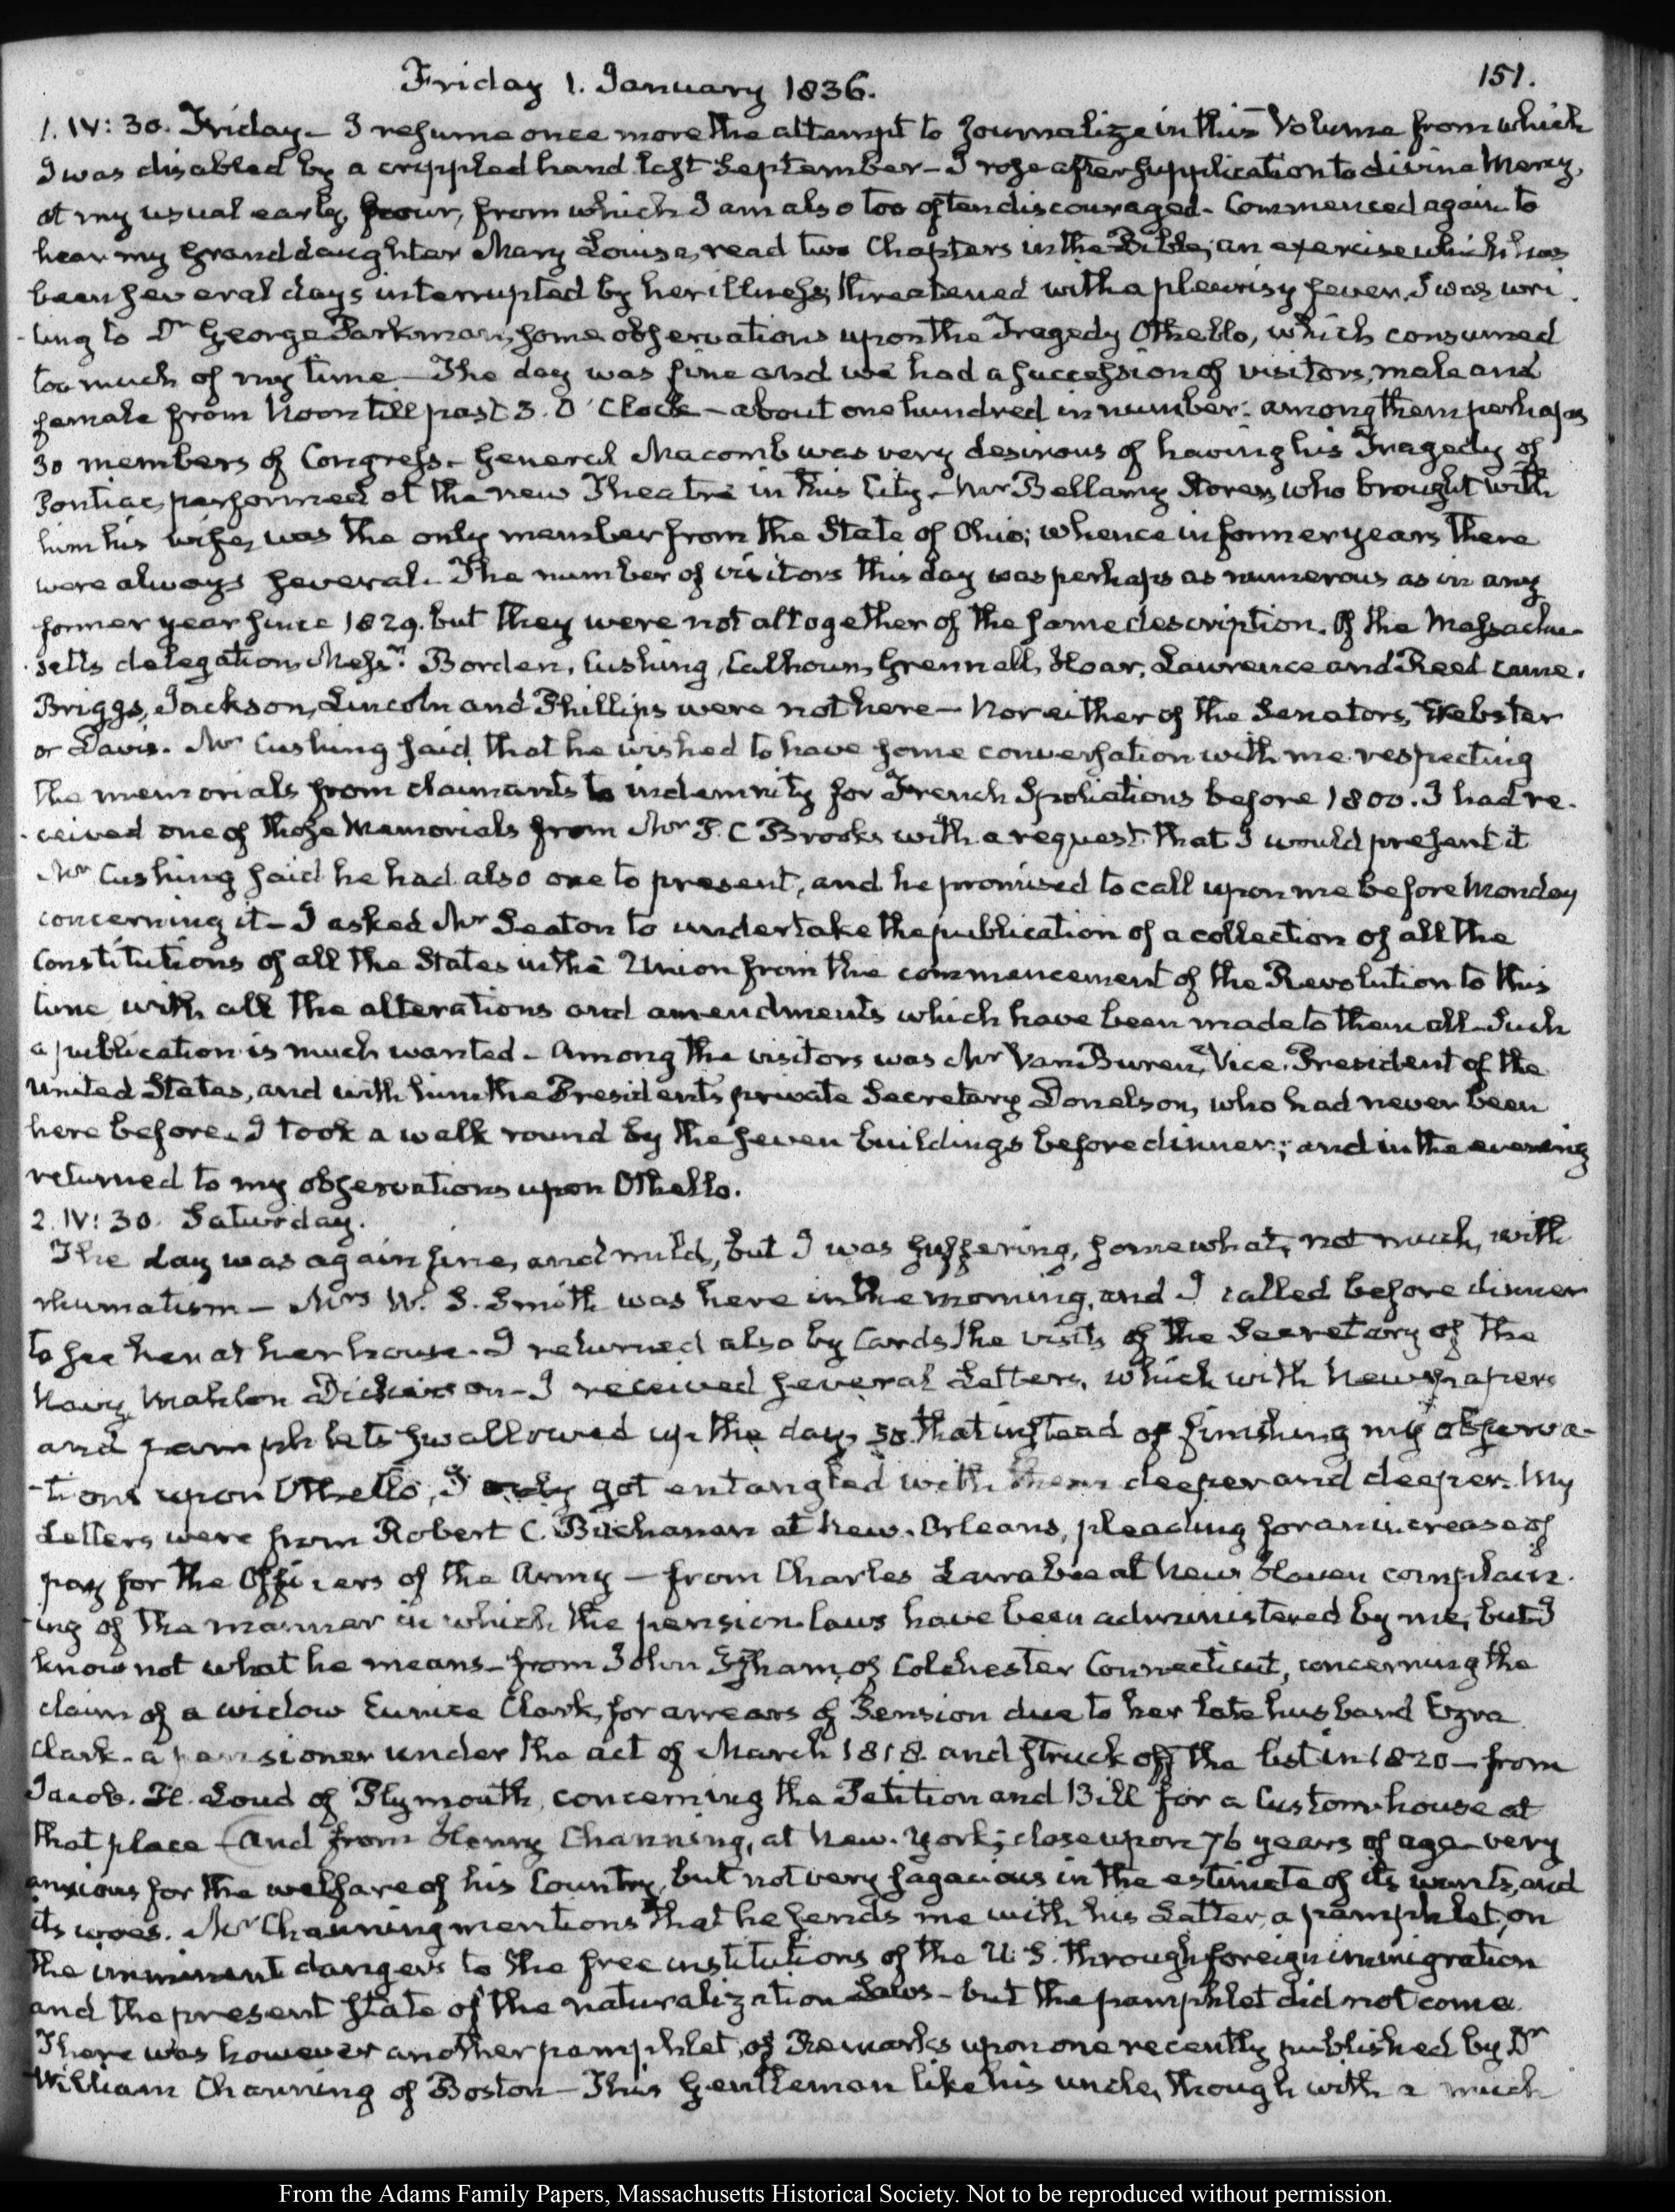 Friday 1. January 1836.
151.
1. IV: 30. Friday – I resume once more the attempt to Journalize in this Volume from which
I was disabled by a crippled hand last September – I rose after supplication to divine Mercy,
at my usual early, hour, from which I am also too often discouraged. Commenced again to
hear my Grand daughter Mary Louisa, read two Chapters in the Bible; an exercise which has
been several days interrupted by her illness, threatened with a pleurisy fever. I was wri
-ting to Dr George Parkman, some observations upon the Tragedy Othello, which consumed
too much of my time – The day was fine and we had a succession of visitors, male and
female from Noon till past 3. O'Clock – about one hundred in number: among them perhaps
30 members of Congress – General Macomb was very desirous of having his Tragedy of
Pontiac, performed at the new Theatre in this City – Mr Bellamy Storer, who brought with
him his wife, was the only member from the State of Ohio; whence in former years there
were always several. The number of visitors this day was perhaps as numerous as in any
former year since 1829. but they were not altogether of the same description. Of the Massachu-
-setts delegation, Messrs Borden, Cushing, Calhoun, Grennell, Hoar, Lawrence and Reed came.
Briggs, Jackson, Lincoln and Phillips were not here – Nor either of the Senators, Webster
or Davis. Mr Cushing said that he wished to have some conversation with me respecting
the memorials from claimants to indemnity for French Spoliations before 1800. I had re-
-ceived one of those Memorials from Mr P. C Brooks with a request that I would present it
Mr Cushing said he had also one to present, and he promised to call upon me before Monday
concerning it – I asked Mr Seaton to undertake the publication of a collection of all the
Constitutions of all the States in the Union from the commencement of the Revolution to this
time with all the alterations and amendments which have been made to them all – Such
a publication is much wanted – Among the visitors was Mr Van Buren, Vice-President of the
United States, and with him the President's private Secretary Donelson, who had never been
here before. I took a walk round by the seven buildings before dinner; and in the evening
returned to my observations upon Othello.
2. IV: 30. Saturday.
The day was again fine, and mild, but I was suffering, somewhat, not much, with
rhumatism – Mrs W. S. Smith was here in the morning, and I called before dinner
to see her at her house. I returned also by Cards the visits of the Secretary of the
Navy, Mahlon Dickerson – I received several Letters, which with Newspapers
and pamphlets swallowed up the day, so that instead of finishing my observa-
-tions upon Othello, I only got entangled with them deeper and deeper. My
Letters were from Robert C. Buchanan at New-Orleans, pleading for an increase of
pay for the Officers of the Army – from Charles Larrabee at New Haven complain-
-ing of the manner in which the pension laws have been administered by me, but I
know not what he means – from John Isham, of Colchester Connecticut, concerning the
claim of a widow Eunice Clark, for arrears of Pension due to her late husband Ezra
Clark – a pensioner under the act of March 1818. and struck off the list in 1820 – from
Jacob. H. Loud of Plymouth, concerning the Petition and Bill for a Custom-house at
that place – and from Henry Channing, at New-York; close upon 76 years of age – very
anxious for the welfare of his Country, but not very sagacious in the estimate of its wants, and
its woes. Mr Channing mentions that he sends me with his Letter, a pamphlet, on
the imminent dangers to the free institutions of the U. S. through foreign immigration
and the present state of the naturalization Laws – but the pamphlet did not come.
There was however another pamphlet, of Remarks upon one recently published by Dr
William Channing of Boston – This Gentleman like his uncle, though with a much
From the Adams Family Papers, Massachusetts Historical Society. Not to be reproduced without permission.